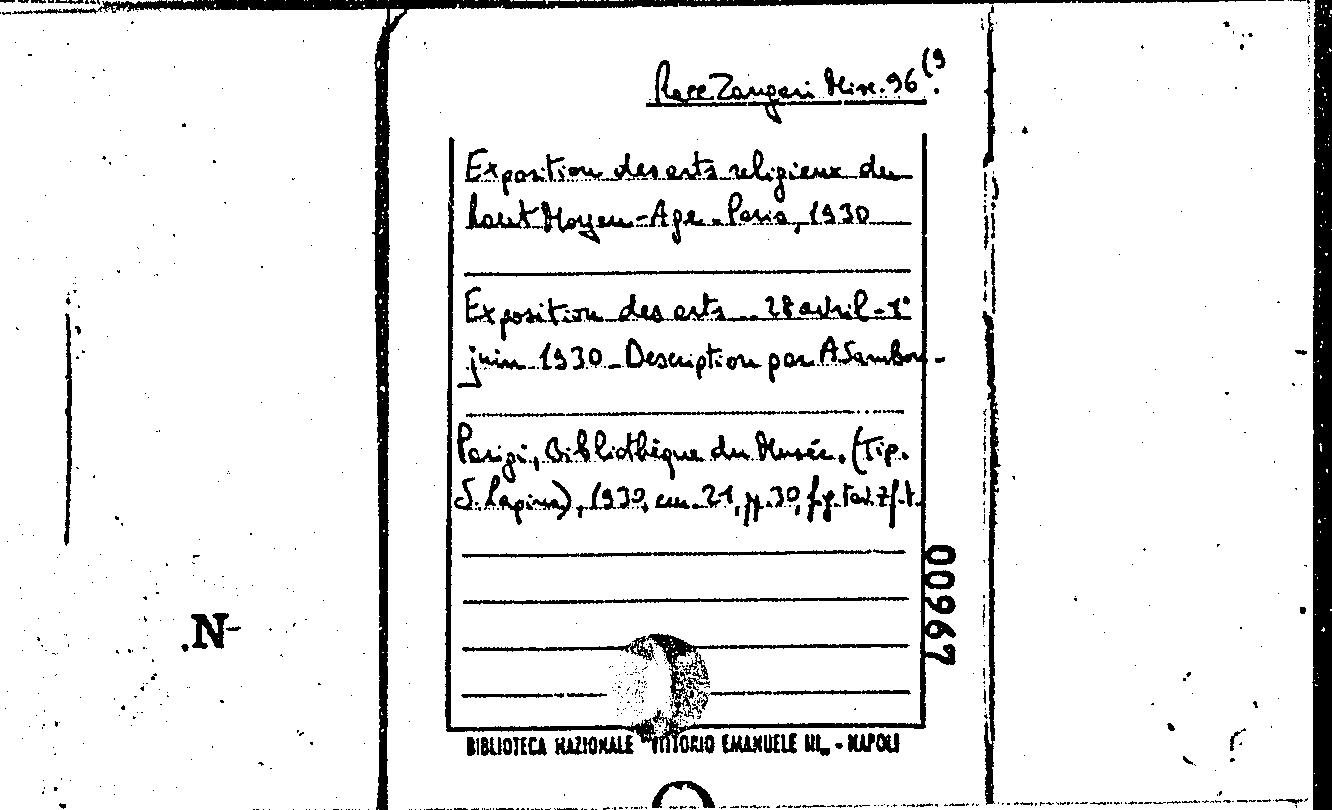 Race Zangari Misc. 96 (9
Exposition des arts religieux du
haut Moyen-Age - Paris, 1930
Exposition des arts - 28 avril - 1°
juin 1930 - Description par A Sambon -
Parigi, Bibliothèque du Musée, (Tip.
S. Lapina), 1930, cm. 21, pp. 30, f.f. tav. 7 f.t.
00967
.N-
BIBLIOTECA NAZIONALE "VITTORIO EMANUELE III„ - NAPOLI